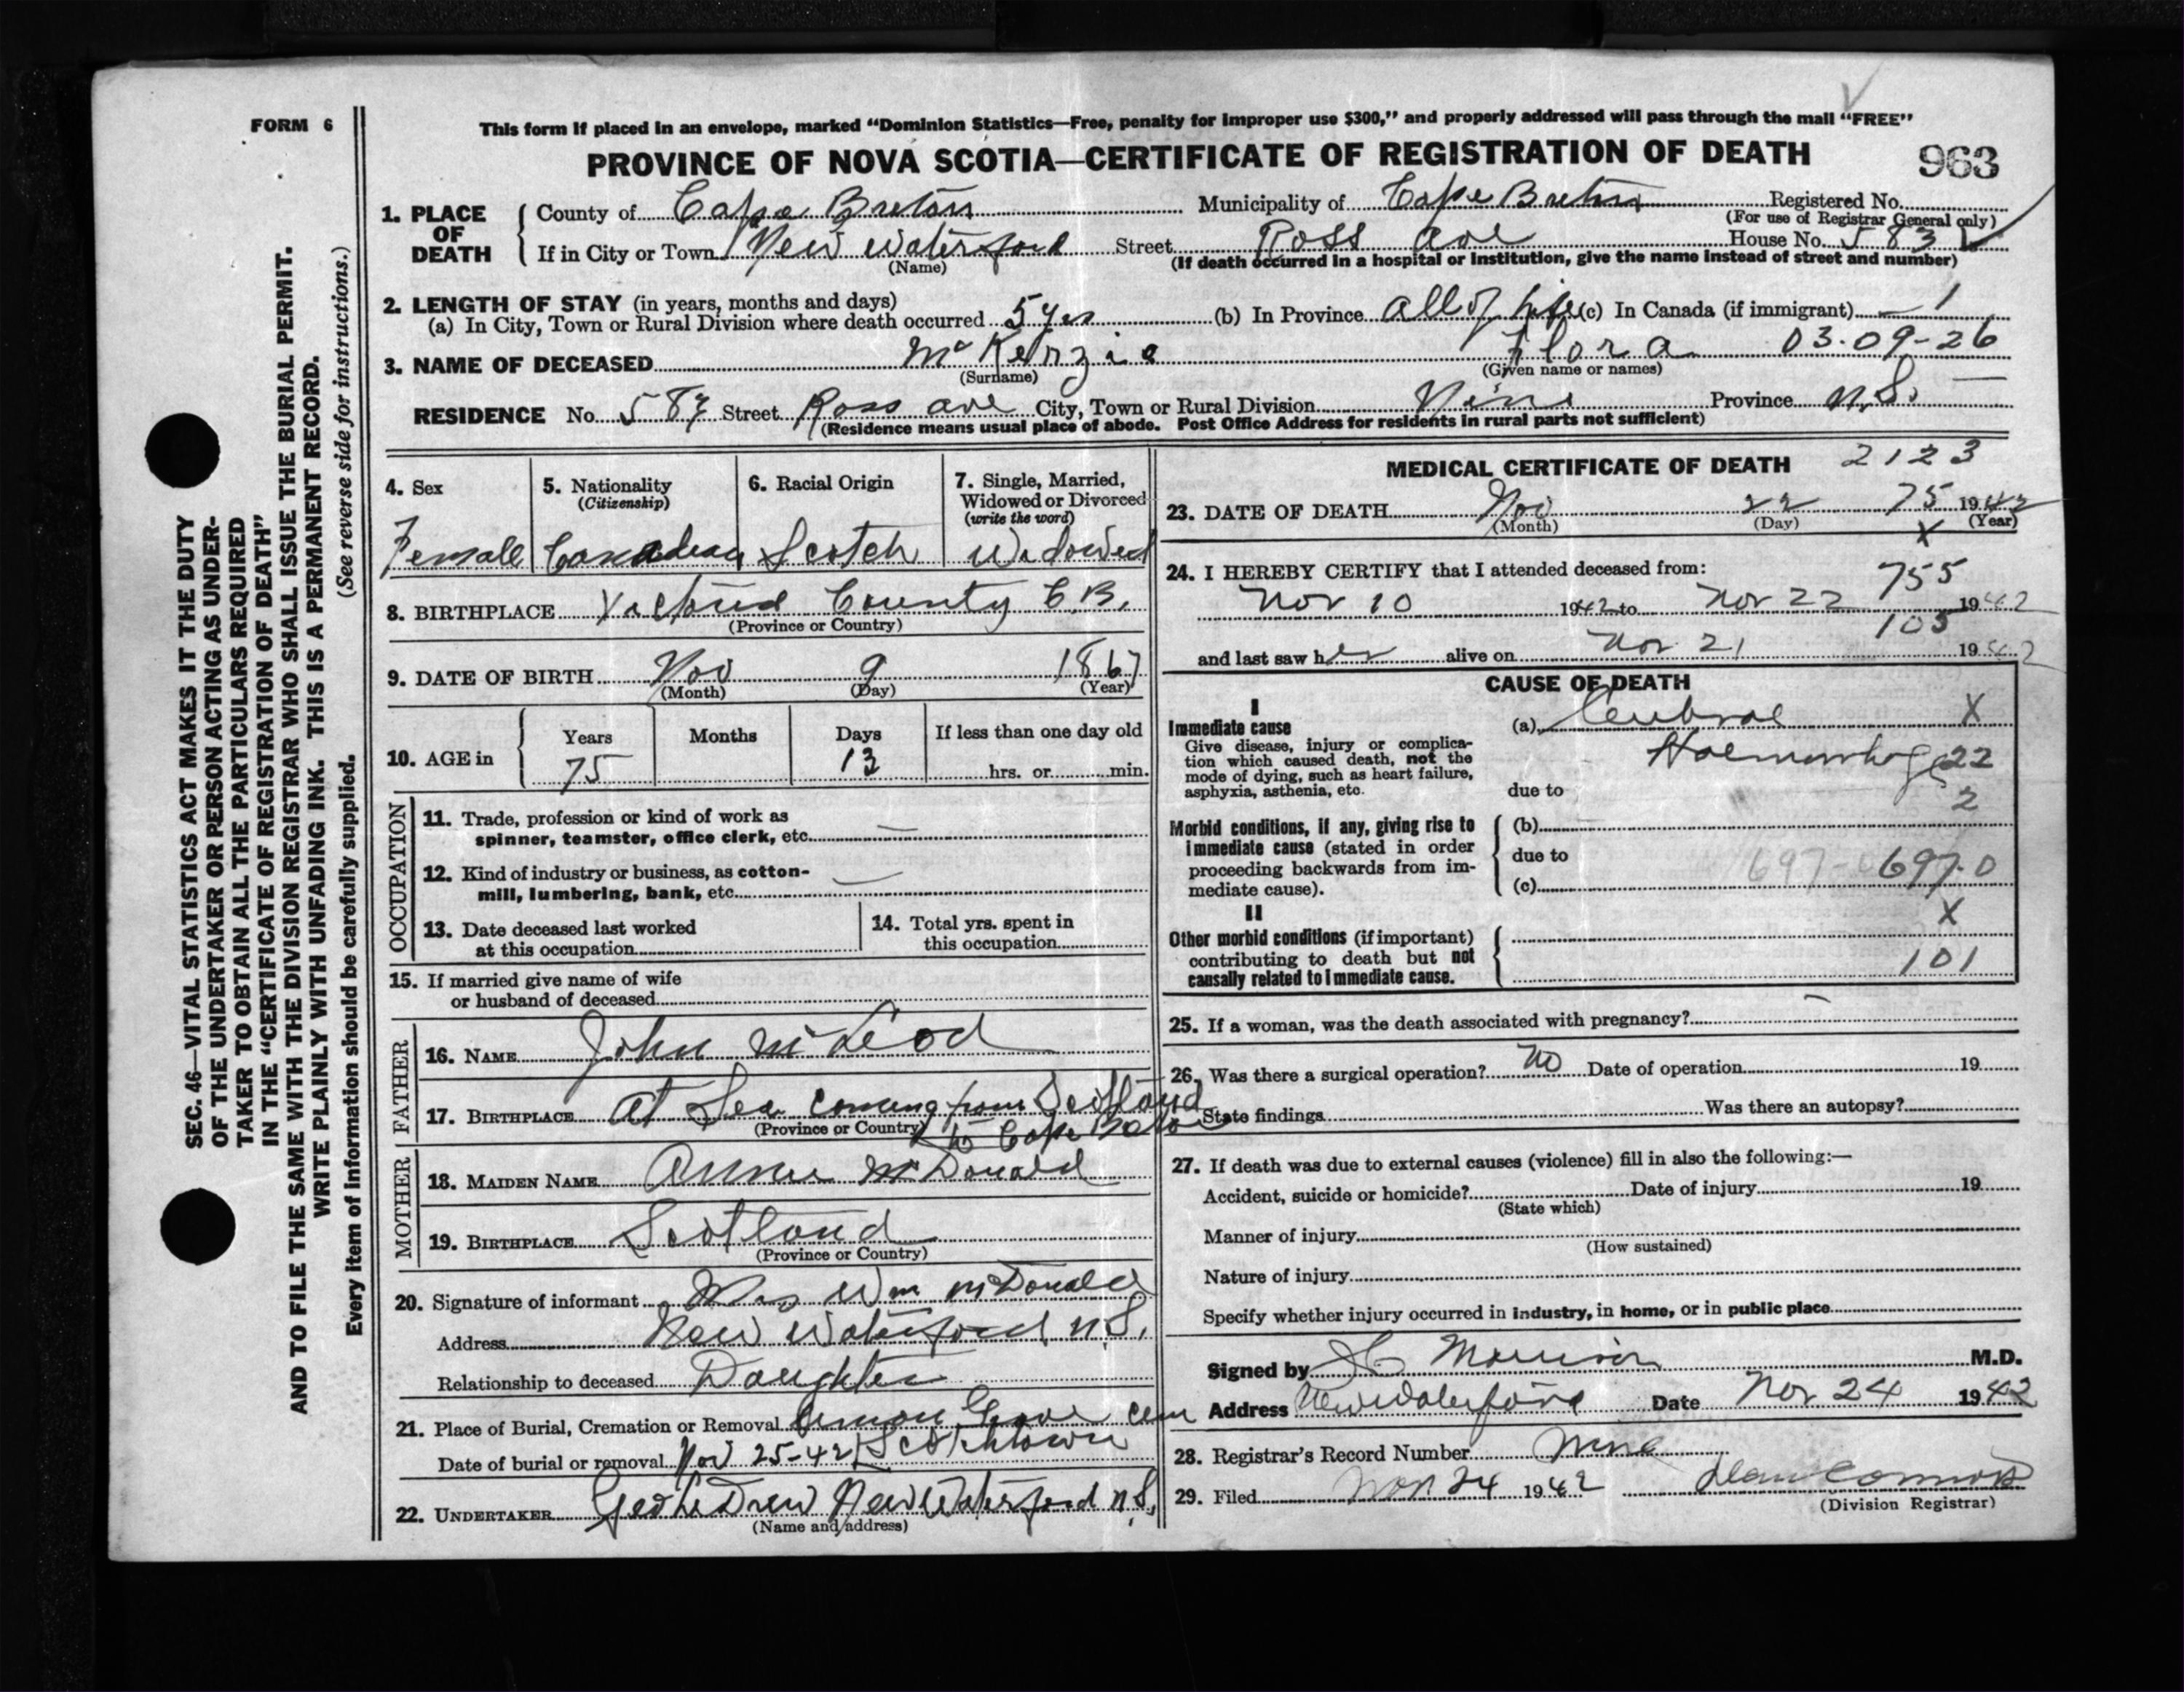 FORM 6
This form if placed in an envelope, marked “Dominion Statistics—Free, penalty for improper use $300,” and properly addressed will pass through the mail “FREE”
PROVINCE OF NOVA SCOTIA—CERTIFICATE OF REGISTRATION OF DEATH
963
1. PLACE OF DEATH
County of Cape Breton Municipality of Cape Breton Registered No.
(For use of Registrar General only)
If in City or Town New Waterford Street Ross Ave House No. 583
(Name) (If death occurred in a hospital or institution, give the name instead of street and number)
2. LENGTH OF STAY (in years, months and days)
(a) In City, Town or Rural Division where death occurred 5 yrs (b) In Province all of life (c) In Canada (if immigrant) — 1
3. NAME OF DECEASED McKenzie Flora 03-09-26
(Surname) (Given name or names)
RESIDENCE No. 587 Street Ross ave City, Town or Rural Division Province N.S.
(Residence means usual place of abode. Post Office Address for residents in rural parts not sufficient)
4. Sex
Female
5. Nationality
(Citizenship)
Canadian
6. Racial Origin
Scotch
7. Single, Married,
Widowed or Divorced
(write the word)
Widowed
8. BIRTHPLACE Victoria County C.B.
(Province or Country)
9. DATE OF BIRTH Nov 9 1867
(Month) (Day) (Year)
10. AGE in
Years Months Days If less than one day old
75 13 hrs. or min.
OCCUPATION
11. Trade, profession or kind of work as
spinner, teamster, office clerk, etc. —
12. Kind of industry or business, as cotton-
mill, lumbering, bank, etc. —
13. Date deceased last worked
at this occupation
14. Total yrs. spent in
this occupation
15. If married give name of wife
or husband of deceased
FATHER
16. NAME John McLeod
17. BIRTHPLACE At Sea coming from Scotland
(Province or Country) to Cape Breton
MOTHER
18. MAIDEN NAME Annie McDonald
19. BIRTHPLACE Scotland
(Province or Country)
20. Signature of informant Mrs Wm McDonald
Address New Waterford N.S.
Relationship to deceased Daughter
21. Place of Burial, Cremation or Removal Grove cem
Date of burial or removal Nov 25-42 Scotchtown
22. UNDERTAKER New Waterford N.S.
(Name and address)
MEDICAL CERTIFICATE OF DEATH 2123
23. DATE OF DEATH Nov 22 75 1942
(Month) (Day) (Year)
X
24. I HEREBY CERTIFY that I attended deceased from:
755
Nov 10 1942 to Nov 22 1942
105
and last saw her alive on Nov 21 1942
CAUSE OF DEATH
I
Immediate cause
Give disease, injury or complica-
tion which caused death, not the
mode of dying, such as heart failure,
asphyxia, asthenia, etc.
(a) Cerebral X
Haemorrhage 22
due to
2
Morbid conditions, if any, giving rise to
immediate cause (stated in order
proceeding backwards from im-
mediate cause).
(b)
due to
697-0 697-0
(c)
II
X
Other morbid conditions (if important)
contributing to death but not
causally related to immediate cause.
101
25. If a woman, was the death associated with pregnancy? —
26. Was there a surgical operation? No Date of operation 19
State findings Was there an autopsy?
27. If death was due to external causes (violence) fill in also the following:—
Accident, suicide or homicide? Date of injury 19
(State which)
Manner of injury
(How sustained)
Nature of injury
Specify whether injury occurred in industry, in home, or in public place
Signed by Morrison M.D.
Address New Waterford Date Nov 24 1942
28. Registrar's Record Number
29. Filed Nov 24 1942
(Division Registrar)
SEC. 46—VITAL STATISTICS ACT MAKES IT THE DUTY
OF THE UNDERTAKER OR PERSON ACTING AS UNDER-
TAKER TO OBTAIN ALL THE PARTICULARS REQUIRED
IN THE “CERTIFICATE OF REGISTRATION OF DEATH”
AND TO FILE THE SAME WITH THE DIVISION REGISTRAR WHO SHALL ISSUE THE BURIAL PERMIT.
WRITE PLAINLY WITH UNFADING INK. THIS IS A PERMANENT RECORD.
(See reverse side for instructions.)
Every item of information should be carefully supplied.